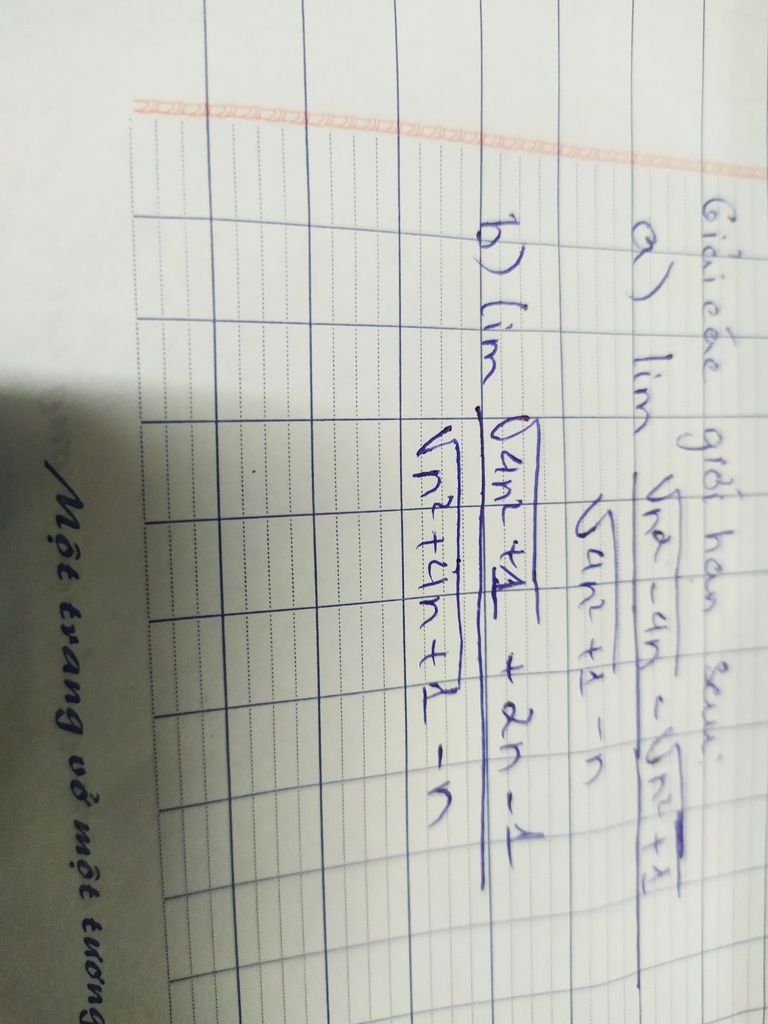 Giải các giới hạn sau:
a) lim √n² - 4n - √n² + 1
√4n² + 1 - n
b) lim √4n² + 1 + 2n - 1
√n² + 4n + 1 - n
Một trang vở một tương